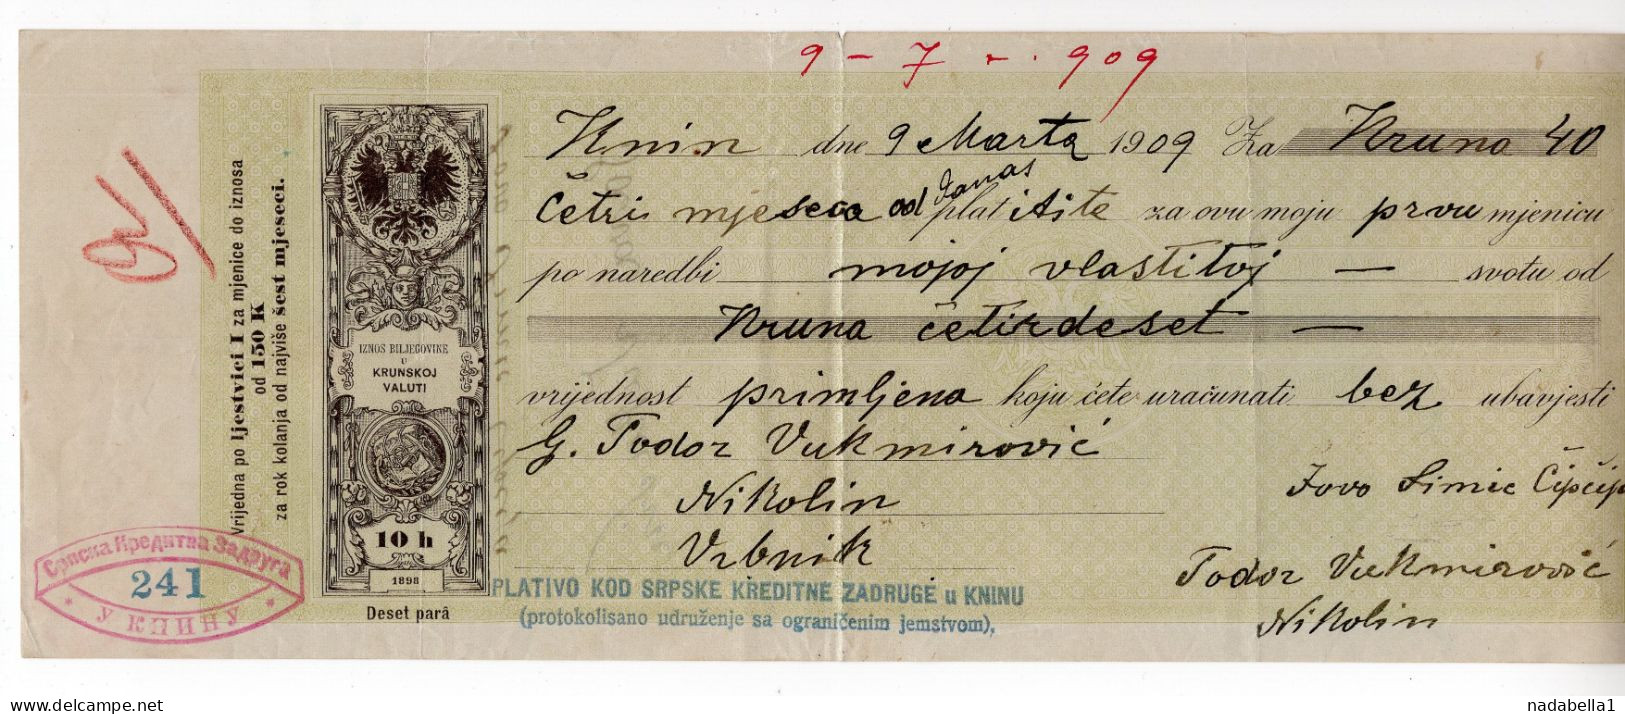 9 - 7 - 909
Knin dne 9 Marta 1909 Za Kruna 40
Četri mjeseca od danas platitite za ovu moju prvu mjenicu
po naredbi mojoj vlastitoj — svotu od
Kruna četirdeset —
vrijednost primljena koju ćete uračunati bez ubavjesti
G. Todor Vukmirović
Nikolin
Vrbnik
Jovo Simić Čipčip
Todor Vukmirović
Nikolin
Vrijedna po ljestvici I za mjenice do iznosa
od 150 K
za rok kolanja od najviše šest mjeseci.
IZNOS BILJEGOVINE
U
KRUNSKOJ
VALUTI
10 h
1898
Deset parâ
Српска Кредитна Задруга
241
* У КНИНУ *
PLATIVO KOD SRPSKE KREDITNE ZADRUGE u KNINU
(protokolisano udruženje sa ograničenim jemstvom),
delcampe.net
nadabella1